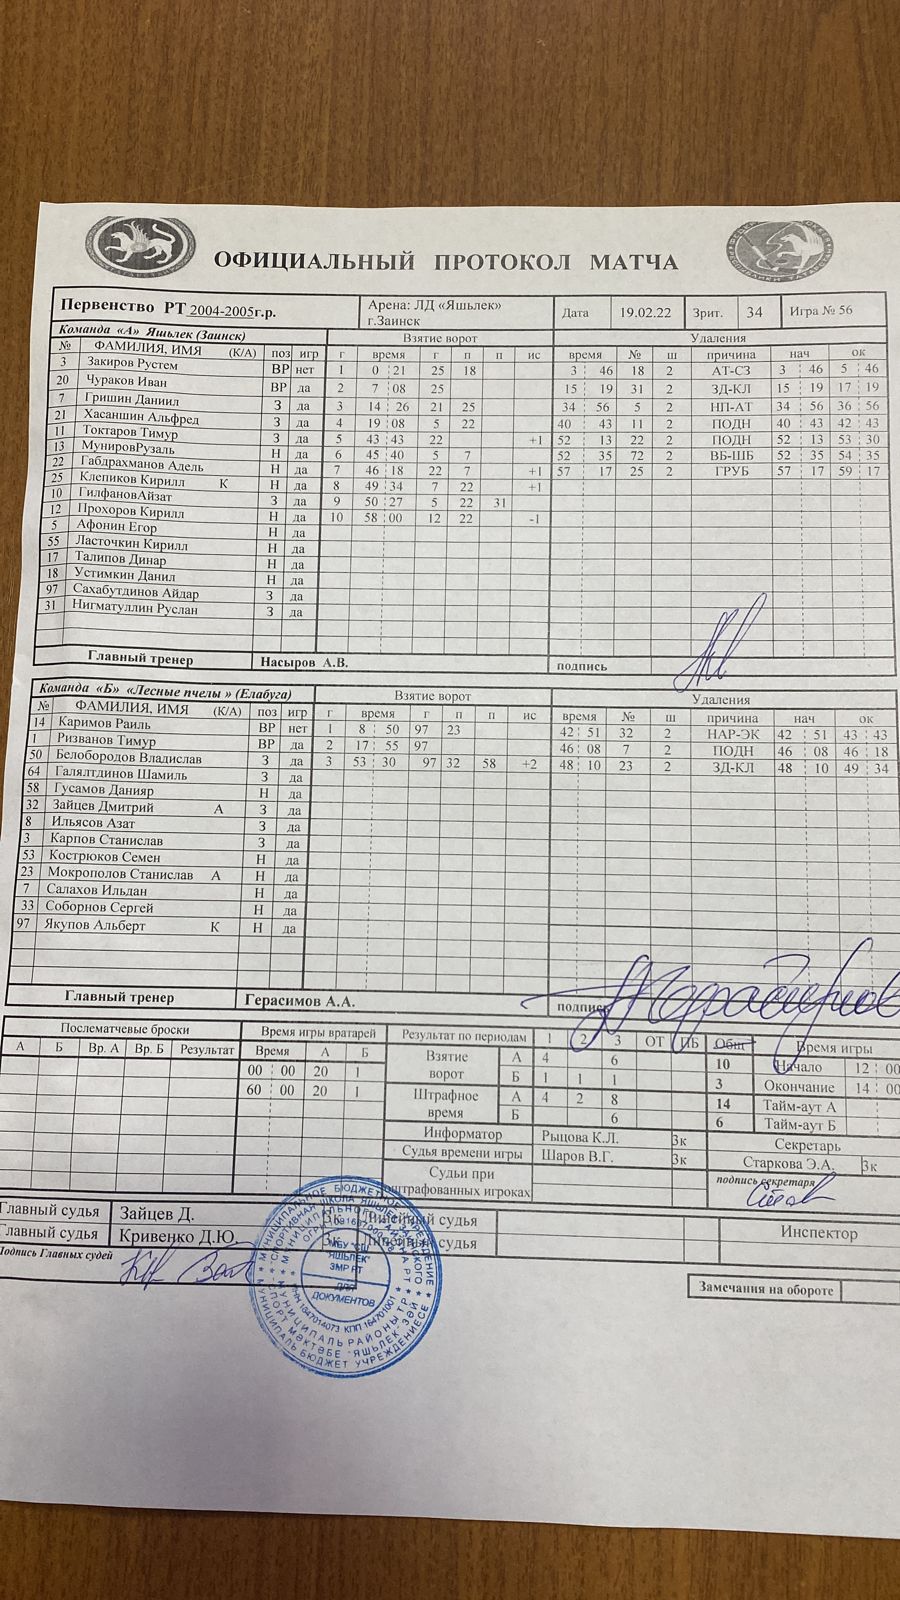 ОФИЦИАЛЬНЫЙ ПРОТОКОЛ МАТЧА
Первенство РТ 2004-2005г.р. Арена: ЛД «Яшьлек» г.Заинск Дата 19.02.22 Зрит. 34 Игра № 56
Команда «А» Яшьлек (Заинск) Взятие ворот Удаления
№ ФАМИЛИЯ, ИМЯ (К/А) поз игр г время г п п ис время № ш причина нач ок
3 Закиров Рустем ВР нет 1 0 21 25 18 3 46 18 2 АТ-СЗ 3 46 5 46
20 Чураков Иван ВР да 2 7 08 25 15 19 31 2 ЗД-КЛ 15 19 17 19
7 Гришин Даниил З да 3 14 26 21 25 34 56 5 2 НП-АТ 34 56 36 56
21 Хасаншин Альфред З да 4 19 08 5 22 40 43 11 2 ПОДН 40 43 42 43
11 Токтаров Тимур З да 5 43 43 22 +1 52 13 22 2 ПОДН 52 13 53 30
13 МунировРузаль Н да 6 45 40 5 7 52 35 72 2 ВБ-ШБ 52 35 54 35
22 Габдрахманов Адель Н да 7 46 18 22 7 +1 57 17 25 2 ГРУБ 57 17 59 17
25 Клепиков Кирилл К Н да 8 49 34 7 22 +1
10 ГилфановАйзат З да 9 50 27 5 22 31
12 Прохоров Кирилл Н да 10 58 00 12 22 -1
5 Афонин Егор Н да
55 Ласточкин Кирилл Н да
17 Талипов Динар Н да
18 Устимкин Данил Н да
97 Сахабутдинов Айдар З да
31 Нигматуллин Руслан З да
Главный тренер Насыров А.В. подпись
Команда «Б» «Лесные пчелы » (Елабуга) Взятие ворот Удаления
№ ФАМИЛИЯ, ИМЯ (К/А) поз игр г время г п п ис время № ш причина нач ок
14 Каримов Раиль ВР нет 1 8 50 97 23 42 51 32 2 НАР-ЭК 42 51 43 43
1 Ризванов Тимур ВР да 2 17 55 97 46 08 7 2 ПОДН 46 08 46 18
50 Белобородов Владислав З да 3 53 30 97 32 58 +2 48 10 23 2 ЗД-КЛ 48 10 49 34
64 Галялтдинов Шамиль З да
58 Гусамов Данияр Н да
32 Зайцев Дмитрий А З да
8 Ильясов Азат З да
3 Карпов Станислав З да
53 Кострюков Семен Н да
23 Мокрополов Станислав А Н да
7 Салахов Ильдан Н да
33 Соборнов Сергей Н да
97 Якупов Альберт К Н да
Главный тренер Герасимов А.А. подпись
Послематчевые броски Время игры вратарей Результат по периодам 1 2 3 ОТ ПБ Общ Время игры
А Б Вр. А Вр. Б Результат Время А Б Взятие ворот А 4 6 10 Начало 12 00
00 00 20 1 Б 1 1 1 3 Окончание 14 00
60 00 20 1 Штрафное время А 4 2 8 14 Тайм-аут А
Б 6 6 Тайм-аут Б
Информатор Рыцова К.Л. 3к Секретарь
Судья времени игры Шаров В.Г. 3к Старкова Э.А. 3к
Судьи при оштрафованных игроках подпись секретаря
Главный судья Зайцев Д. 3к Линейный судья Инспектор
Главный судья Кривенко Д.Ю. 3к Линейный судья
Подпись Главных судей
Замечания на обороте
МБУ "СШ "ЯШЬЛЕК" ЗМР РТ
ДЛЯ ДОКУМЕНТОВ